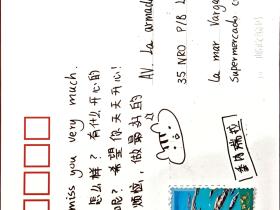 miss you very much.
怎么样？有什么开心的
呢？希望你天天开心！
烦恼，做最好的
AV. La armad
35 NRO P/B L
la mar Varga
Supermercado c
委内瑞拉